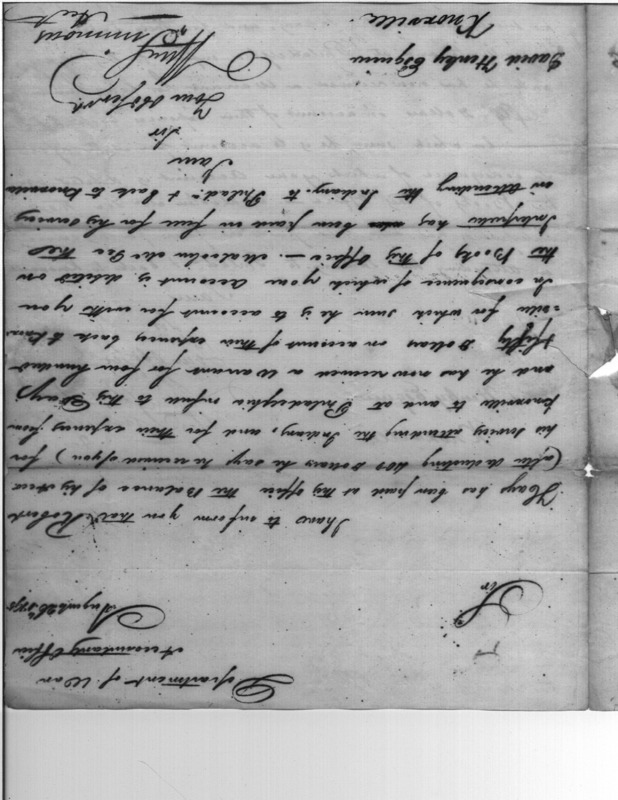 Department of War
Accountants Office
August 26th 1795
Sir
I have to inform you that Robert
Hays has been paid at this office the Balance of his Acct
(after deducting 400 Dollars he says he received of you) for
his serving attending the Indians, and for their expenses from
Knoxville to and at Philadelphia up to this Day
and he has now received a Warrant for four hundred
& fifty Dollars on account of their expenses back to Knox
=ville for which sum he is to account for with you
In consequence of which your account is debited on
the Books of this Office — Malcolm McGee the
Interpreter has been paid in full for his serving
in attending the Indians to Philada. & back to Knoxville
I am
Sir
Your Obd Servt
Wm Simmons
Acct
David Henley Esquire
Knoxville